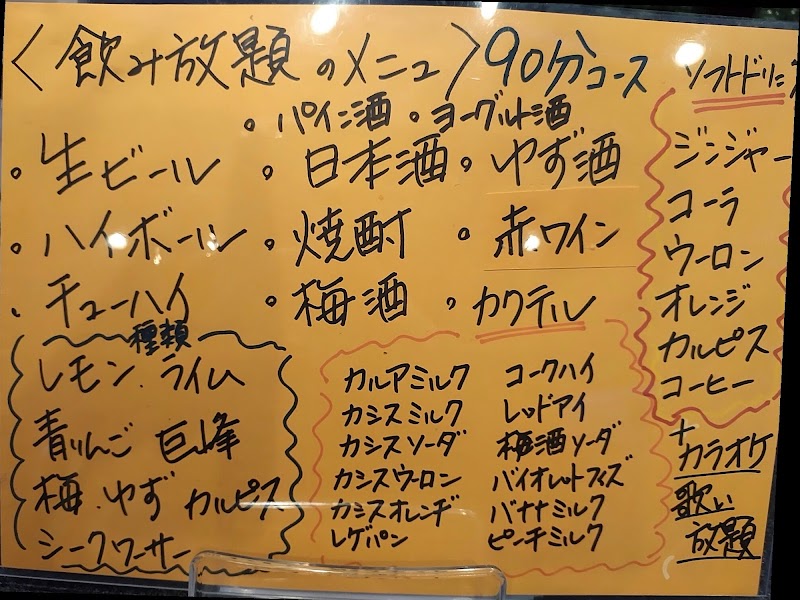 〈飲み放題のメニュ〉90分コース
。パイン酒 。ヨーグルト酒
。生ビール 。日本酒 。ゆず酒
。ハイボール 。焼酎 。赤.ワイン
。チューハイ 。梅酒 。カクテル
種類
レモン.ライム
青りんご 巨峰
梅.ゆず カルピス
シークワーサー
カルアミルク コークハイ
カシスミルク レッドアイ
カシスソーダ 梅酒ソーダ
カシスウーロン バイオレットフィズ
カシスオレンヂ バナナミルク
レゲパン ピーチミルク
ソフトドリン
ジンジャー
コーラ
ウーロン
オレンジ
カルピス
コーヒー
+
カラオケ
歌い
放題